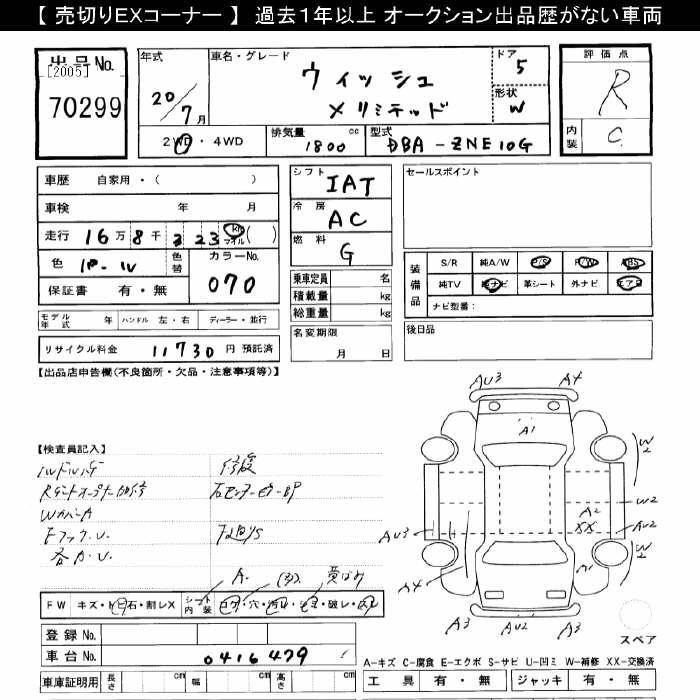 【 売切りEXコーナー 】 過去１年以上 オークション出品歴がない車両
出品No.
[2005]
70299
年式
20/7月
2WD・4WD
車名・グレード
ウィッシュ
X リミテッド
ドア
5
形状
W
排気量
1800 cc
型式
DBA-ZNE10G
評価点
R
内装
C
車歴 自家用・( )
車検 年 月
走行 16万 8千 323 km マイル ( )
色
色替
カラーNo.
070
保証書 有・無
シフト
IAT
冷房
AC
燃料
G
乗車定員 名
積載量 kg
総重量 kg
名変期限
月 日
セールスポイント
装備品
S/R 純A/W P/S P/W ABS
純TV 純ナビ 革シート 外ナビ エアB
ナビ型番:
後日品
モデル年式 年 ハンドル 左・右 ディーラー・並行
リサイクル料金 11730 円 預託済
【出品店申告欄(不良箇所・欠品・注意事項等)】
【検査員記入】
修復
Wカバー A
FW キズ・トビ石・割レX
シート内装
コゲ・穴・汚レ・破レ
A.
登録 No.
車台 No. 0416479
車庫証明用 長さ cm 幅 cm 高さ cm
AU3
A4
A1
W2
W2
A2
XX
AU3
AU2
W2
A4
A1
A3
AU2
A3
スペア
A-キズ C-腐食 E-エクボ S-サビ U-凹ミ W-補修 XX-交換済
工具 有・無 ジャッキ 有・無